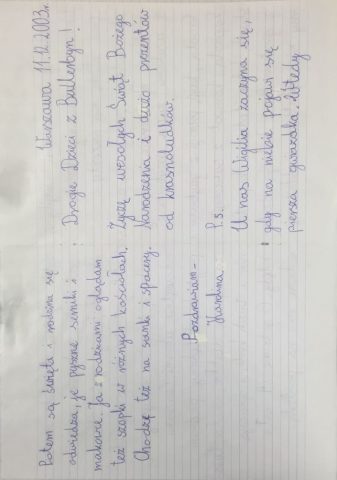 Warszawa 11.12.2003r.
Drogie Dzieci z Bullerbyn!
Życzę wesołych Świąt Bożego
Narodzenia i dużo prezentów
od krasnoludków.
P.s.
U nas Wigilia zaczyna się,
gdy na niebie pojawi się
pierwsza gwiazdka. Wtedy
Potem są święta i rodzina się
odwiedza, je pyszne serniki i
makowce. Ja z rodzicami oglądam
też szopki w różnych kościołach.
Chodzę też na sanki i spacery.
Pozdrawiam-
Karolina